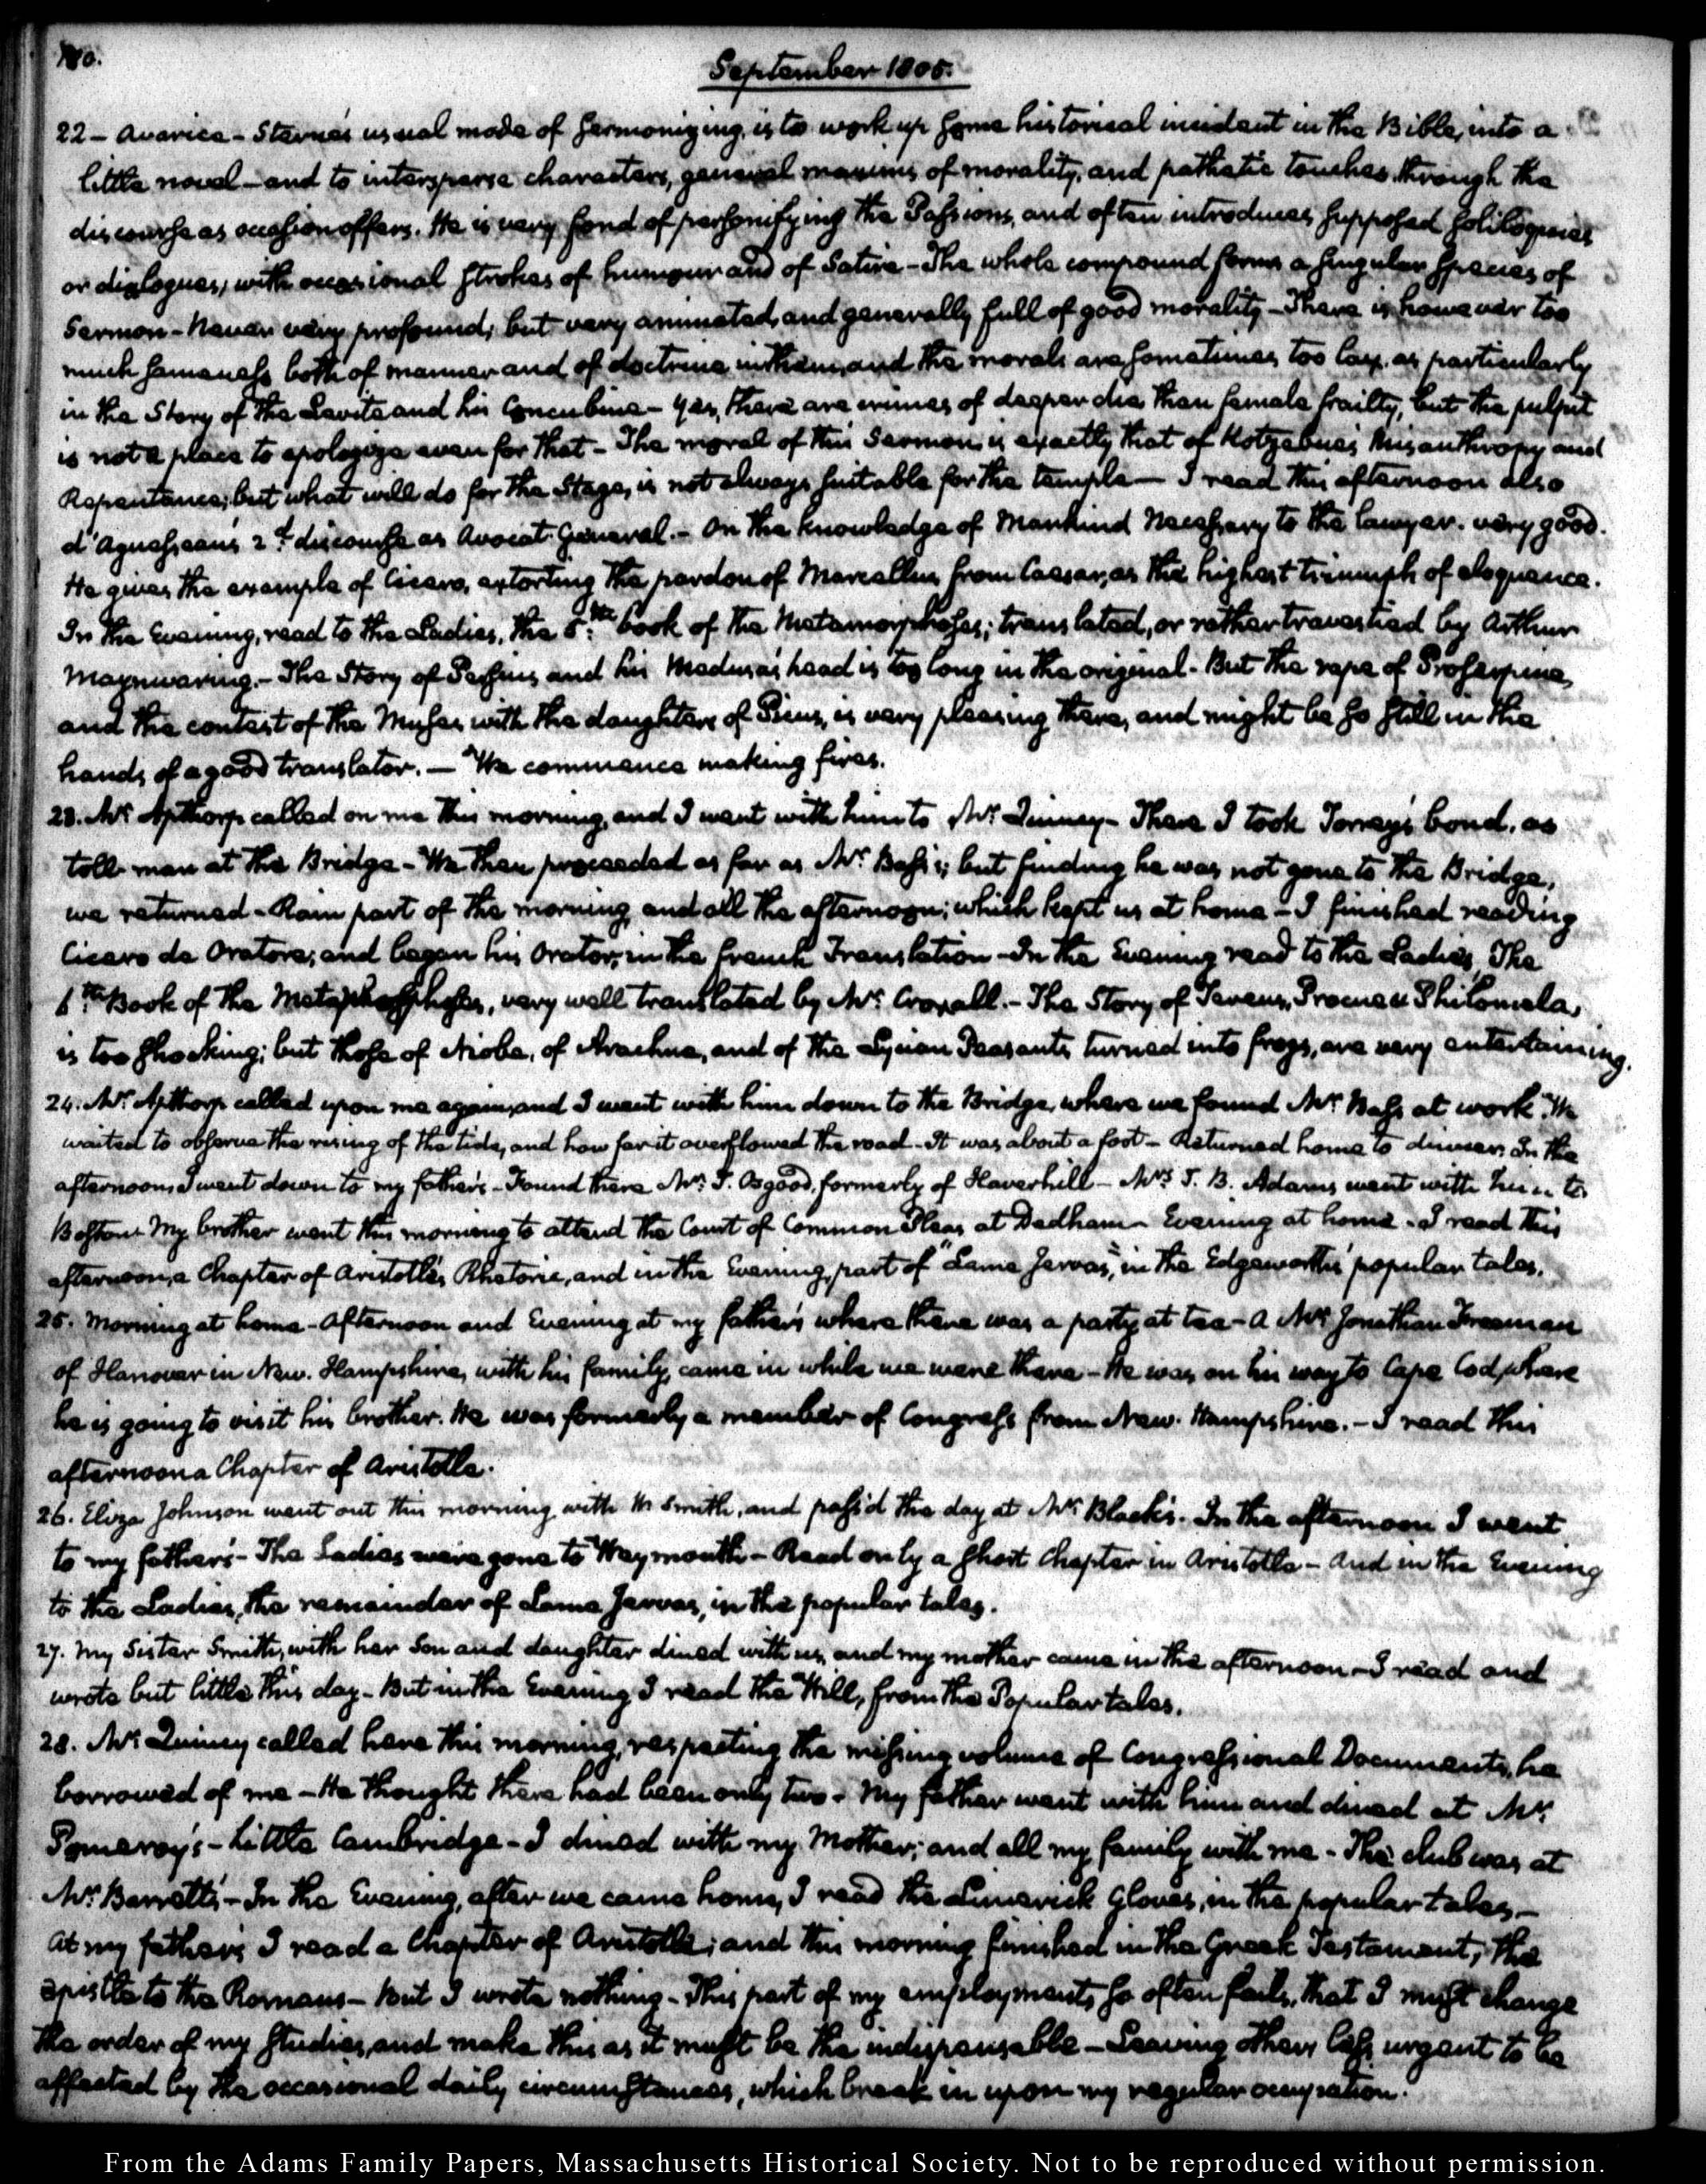 180.
September 1805.
22 – Avarice – Sterne's usual mode of sermonizing, is to work up some historical incident in the Bible, into a
little novel – and to intersperse characters, general maxims of morality, and pathetic touches, through the
discourse as occasion offers. He is very fond of personifying the Passions, and often introduces supposed soliloquies
or dialogues, with occasional strokes of humour and of Satire – The whole compound forms a singular species of
Sermon – Never very profound, but very animated, and generally full of good morality – There is however too
much sameness both of manner and of doctrine in them, and the morals are sometimes too lax, as particularly
in the Story of the Levite and his Concubine – Yes, there are crimes of deeper die than female frailty, but the pulpit
is not a place to apologize even for that – The moral of this Sermon, is exactly that of Kotzebue's Misanthropy and
Repentance; but what will do for the Stage, is not always suitable for the temple — I read this afternoon also
d'Aguesseau's 2.d discourse as Avocat General. – On the knowledge of Mankind necessary to the lawyer. very good.
He gives the example of Cicero, extorting the pardon of Marcellus from Caesar, as the highest triumph of eloquence.
In the Evening, read to the Ladies, the 5.th book of the Metamorphoses; translated, or rather travestied by Arthur
Maynwaring. – The Story of Perseus and his Medusa's head is too long in the original. But the rape of Proserpine,
and the contest of the Muses with the daughters of Pierus, is very pleasing there, and might be so still in the
hands of a good translator. — We commence making fires.
23. Mr. Apthorp called on me this morning, and I went with him to Mr. Quincy – There I took Torrey's bond, as
toll-man at the Bridge – We then proceeded as far as Mr. Bass's; but finding he was not gone to the Bridge,
we returned – Rain part of the morning and all the afternoon; which kept us at home – I finished reading
Cicero de Oratore; and began his Orator, in the french Translation – In the Evening read to the Ladies, The
6.th Book of the Metamorphoses, very well translated by Mr. Croxall. – The Story of Tereus, Procne & Philomela,
is too shocking; but those of Niobe, of Arachne, and of the Lycian Peasants turned into frogs, are very entertaining.
24. Mr. Apthorp called upon me again, and I went with him down to the Bridge, where we found Mr. Bass at work. We
waited to observe the rising of the tide, and how far it overflowed the road – It was about a foot – Returned home to dinner. In the
afternoon, I went down to my father's – Found there Mr. T. Osgood, formerly of Haverhill – Mrs. T. B. Adams went with him to
Boston. My brother went this morning to attend the Court of Common Pleas at Dedham – Evening at home – I read this
afternoon, a Chapter of Aristotle's Rhetoric, and in the Evening, part of "Lame Jervas", in the Edgeworths' popular tales.
25. Morning at home – Afternoon and Evening at my father's where there was a party at tea – A Mr. Jonathan Freeman
of Hanover in New-Hampshire, with his family, came in while we were there – He was on his way to Cape Cod, where
he is going to visit his brother. He was formerly a member of Congress from New-Hampshire. – I read this
afternoon a Chapter of Aristotle.
26. Eliza Johnson went out this morning with Mr Smith, and pass'd the day at Mr. Black's. In the afternoon I went
to my father's – The Ladies were gone to Weymouth – Read only a short Chapter in Aristotle – And in the Evening
to the Ladies, the remainder of Lame Jervas, in the popular tales.
27. My Sister Smith, with her Son and daughter dined with us, and my mother came in the afternoon – I read and
wrote but little this day – But in the Evening I read the Will, from the Popular tales.
28. Mr. Quincy called here this morning, respecting the missing volume of Congressional Documents, he
borrowed of me – He thought there had been only two – My father went with him and dined at Mr.
Pomeroy's – Little Cambridge – I dined with my Mother; and all my family with me – The club was at
Mr. Barrett's – In the Evening, after we came home, I read the Limerick Gloves, in the popular tales. –
At my father's I read a Chapter of Aristotle; and this morning finished in the Greek Testament, the
epistle to the Romans – But I wrote nothing – This part of my employments so often fails, that I must change
the order of my studies, and make this as it must be the indispensable – Leaving others less urgent to be
affected by the occasional daily circumstances, which break in upon my regular occupation.
From the Adams Family Papers, Massachusetts Historical Society. Not to be reproduced without permission.